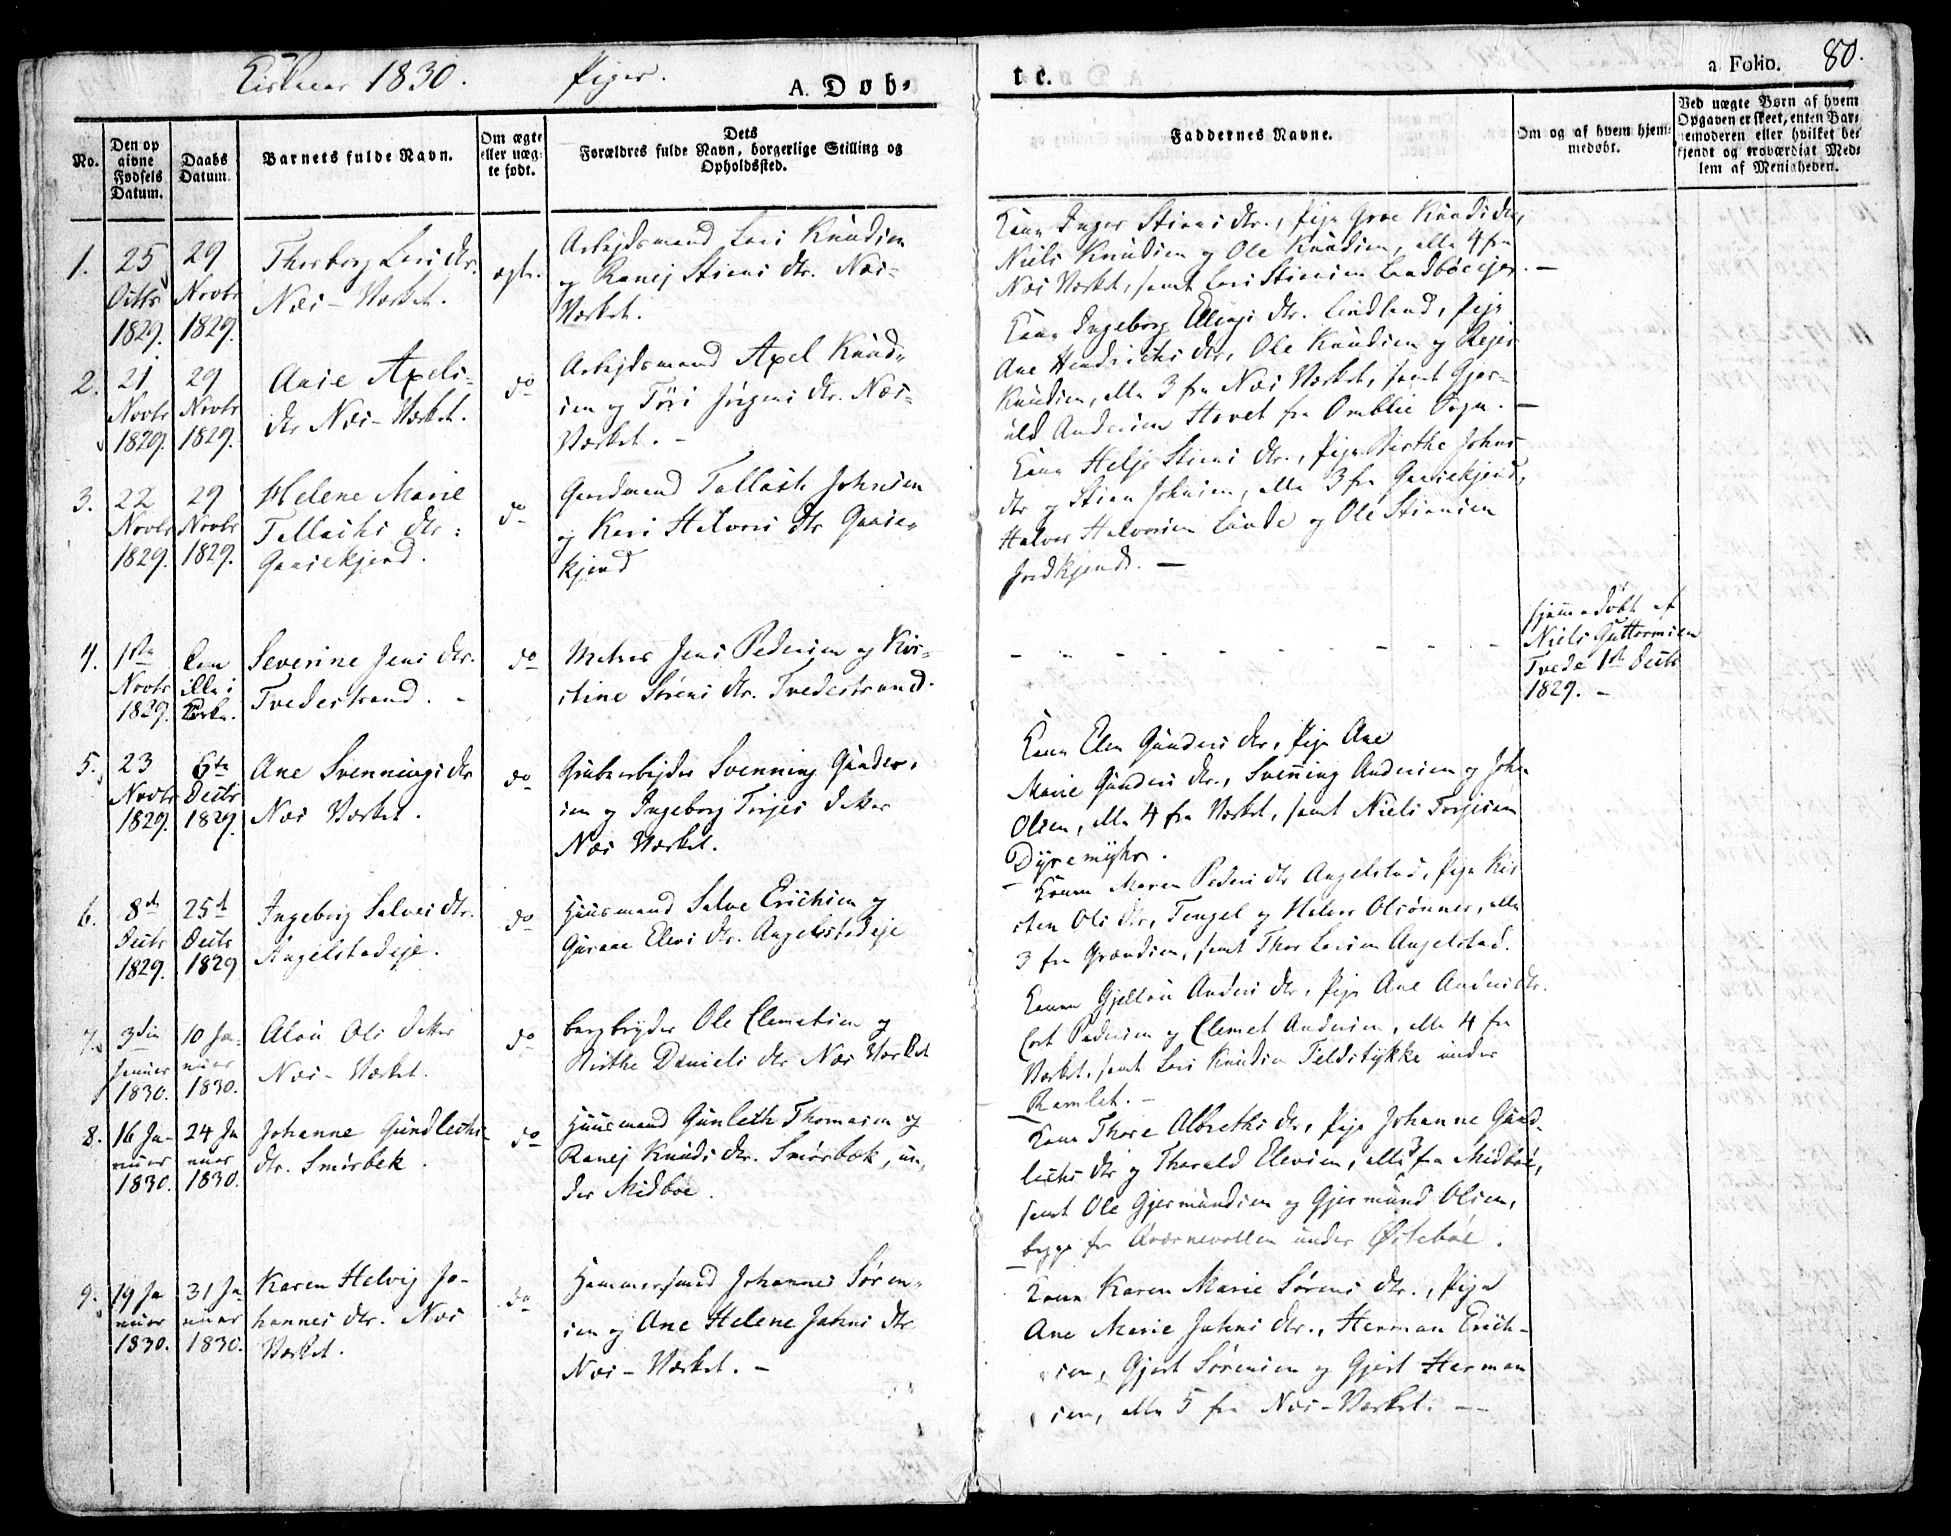 Kirkeaar 1830. Piger. A. Døb-
te. a Folio. 80.
No.
Den op
givne
Fødsels
Datum.
Daabs
Datum.
Barnets fulde Navn.
Om ægte
eller uæg-
te født.
Dets
Forældres fulde Navn, borgerlige Stilling og
Opholdssted.
Faddernes Navne.
Om og af hvem hjem-
medøbt.
Ved uægte Børn af hvem
Opgaven er skeet, enten Bar-
nemoderen eller hvilket be-
kjendt og troværdigt Med-
lem af Menigheden.
1.
25
Octbr
1829.
29
Novbr
1829.
Thorborg Lars dtr.
Næs-Værket.
ægte.
Arbejdsmand Lars Knudsen
og Ranej Stiens dtr. Næs-
Værket.
Kone Inger Stians dtr., Pige Groe Knuds dtr,
Niels Knudsen og Ole Knudsen, alle 4 fra
Næs Værket, samt Lars Stiensen
2.
21
Novbr
1829.
29
Novbr
1829.
Aase Axels-
dtr Næs-Værket.
do
Arbejdsmand Axel Knud-
sen og Jørgens dtr. Næs-
Værket. -
Kone Ingeborg Ellings dtr. Lindland, Pige
Ane Hendrichs dtr, Ole Knudsen og
Knudsen, alle 3 fra Næs Værket, samt Gjer-
uld Andersen Hovet fra Omblie Sogn. -
3.
22
Novbr
1829.
29
Novbr
1829.
Helene Marie
Tellachs dtr:
Gaasekjend.
do
Gaardmand Tallach Johnsen
og Kari Halvors dtr Gaase-
kjend
Kone Helje Stiens dtr., Pige Birthe Johns
dtr og Stian Johnsen, alle 3 fra Gaasekjend,
Halvor Halvorsen Lunde og Ole Stiansen
4.
1ste
Novbr
1829.
Kom
ikke i
Kirke.
Severine Jens dtr.
Tvedestrand. -
do
Jens Pedersen og Kir-
stine Sørens dtr. Tvedestrand.
- - - - - - - - -
hjemmedøbt af
Niels Guttormsen
Tvede 1ste Decbr
1829. -
5.
23
Novbr
1829.
6te
Decbr
1829.
Ane Svennings dtr
Næs Værket.
do
Grubearbejder Svenning Gunder-
sen og Ingeborg Terjes datter
Næs Værket.
Kone Elen Gunders dtr, Pige Ane
Marie Gunders dtr., Svenning Andersen og John
Olsen, alle 4 fra Værket, samt Niels Torjesen
Dyremyhr.
6.
8de
Decbr
1829.
25de
Decbr
1829
Ingeborg Salves dtr.
Angelstadeje.
do
Huusmand Salve Erichsen og
Gurine Elevs dtr. Angelstadeje
Konen Maren Peders dtr Angelstad, Pige Kir
sten Ols dtr, Tengel og Halvor Olsønner, alle
3 fra Grændsen, samt Thor Larsen Angelstad.
7.
3die
Januar
1830.
10 Ja-
nuar
1830.
Alou Ols datter
Næs-Værket.
do
Bergbryder Ole Clemetsen og
Birthe Daniels dtr Næs Værket
Konen Gjellou Anders dtr, Pige Ane Anders dtr.
Cort Pedersen og Clemet Andersen, alle 4 fra
Værket, samt Lars Knudsen Feldstykke under
Ramlet. -
8.
16 Ja-
nuar
1830.
24 Ja
nuar
1830.
Johanne Gundlechs-
dtr. Smørbek.
do
Huusmand Gunlech Thomasen og
Ranej Knuds dtr. Smørbæk, un-
der Midboe.
Kone Thore Albrethts dtr, Pige Johanne Gund-
lechs dtr og Tharald Elevsen, alle 3 fra Midboe,
samt Ole Gjermundsen og Gjermund Olsen,
begge fra Qværnevollen under Østeboe.
9.
19 Ja
nuar
1830.
31 Ja-
nuar
1830.
Karen Helvig Jo-
hannes dtr. Næs
Værket.
do
Hammersmed Johannes Søren-
sen og Ane Helene Jahns dtr
Næs-Værket. -
Kone Karen Marie Sørens dtr., Pige
Ane Marie Jahns dtr., Herman Erich-
sen, Gjert Sørensen og Gjert Herman
sen, alle 5 fra Næs-Værket. --